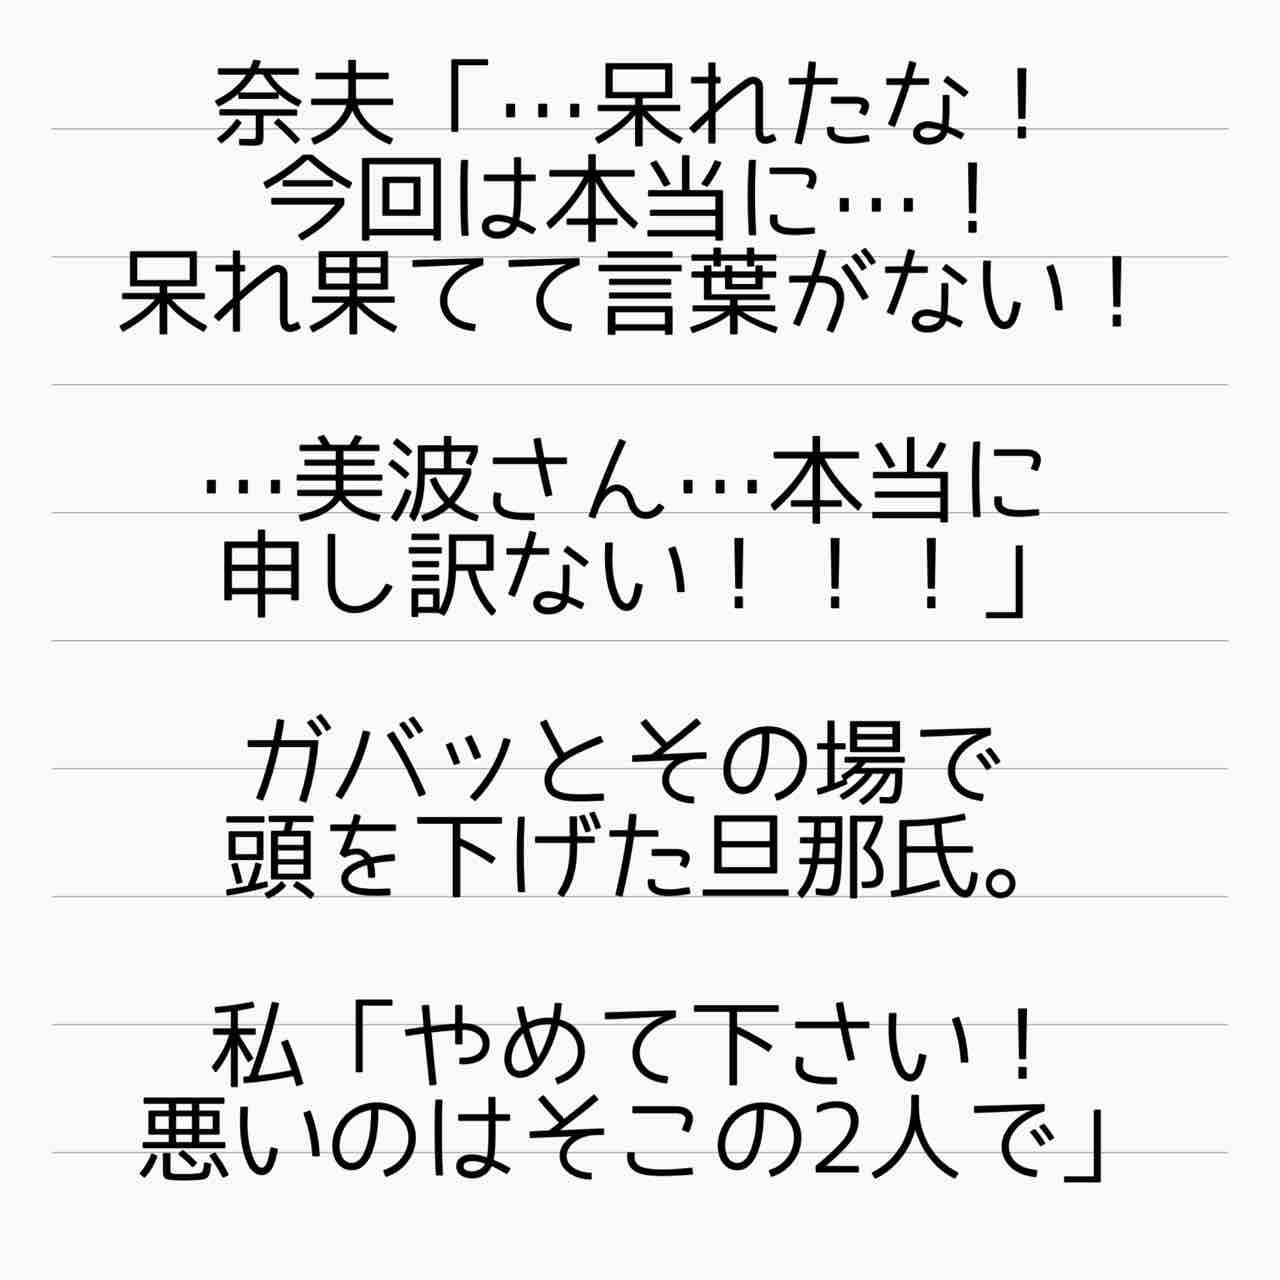 奈夫「…呆れたな！
今回は本当に…！
呆れ果てて言葉がない！
…美波さん…本当に
申し訳ない！！！」
ガバッとその場で
頭を下げた旦那氏。
私「やめて下さい！
悪いのはそこの2人で」